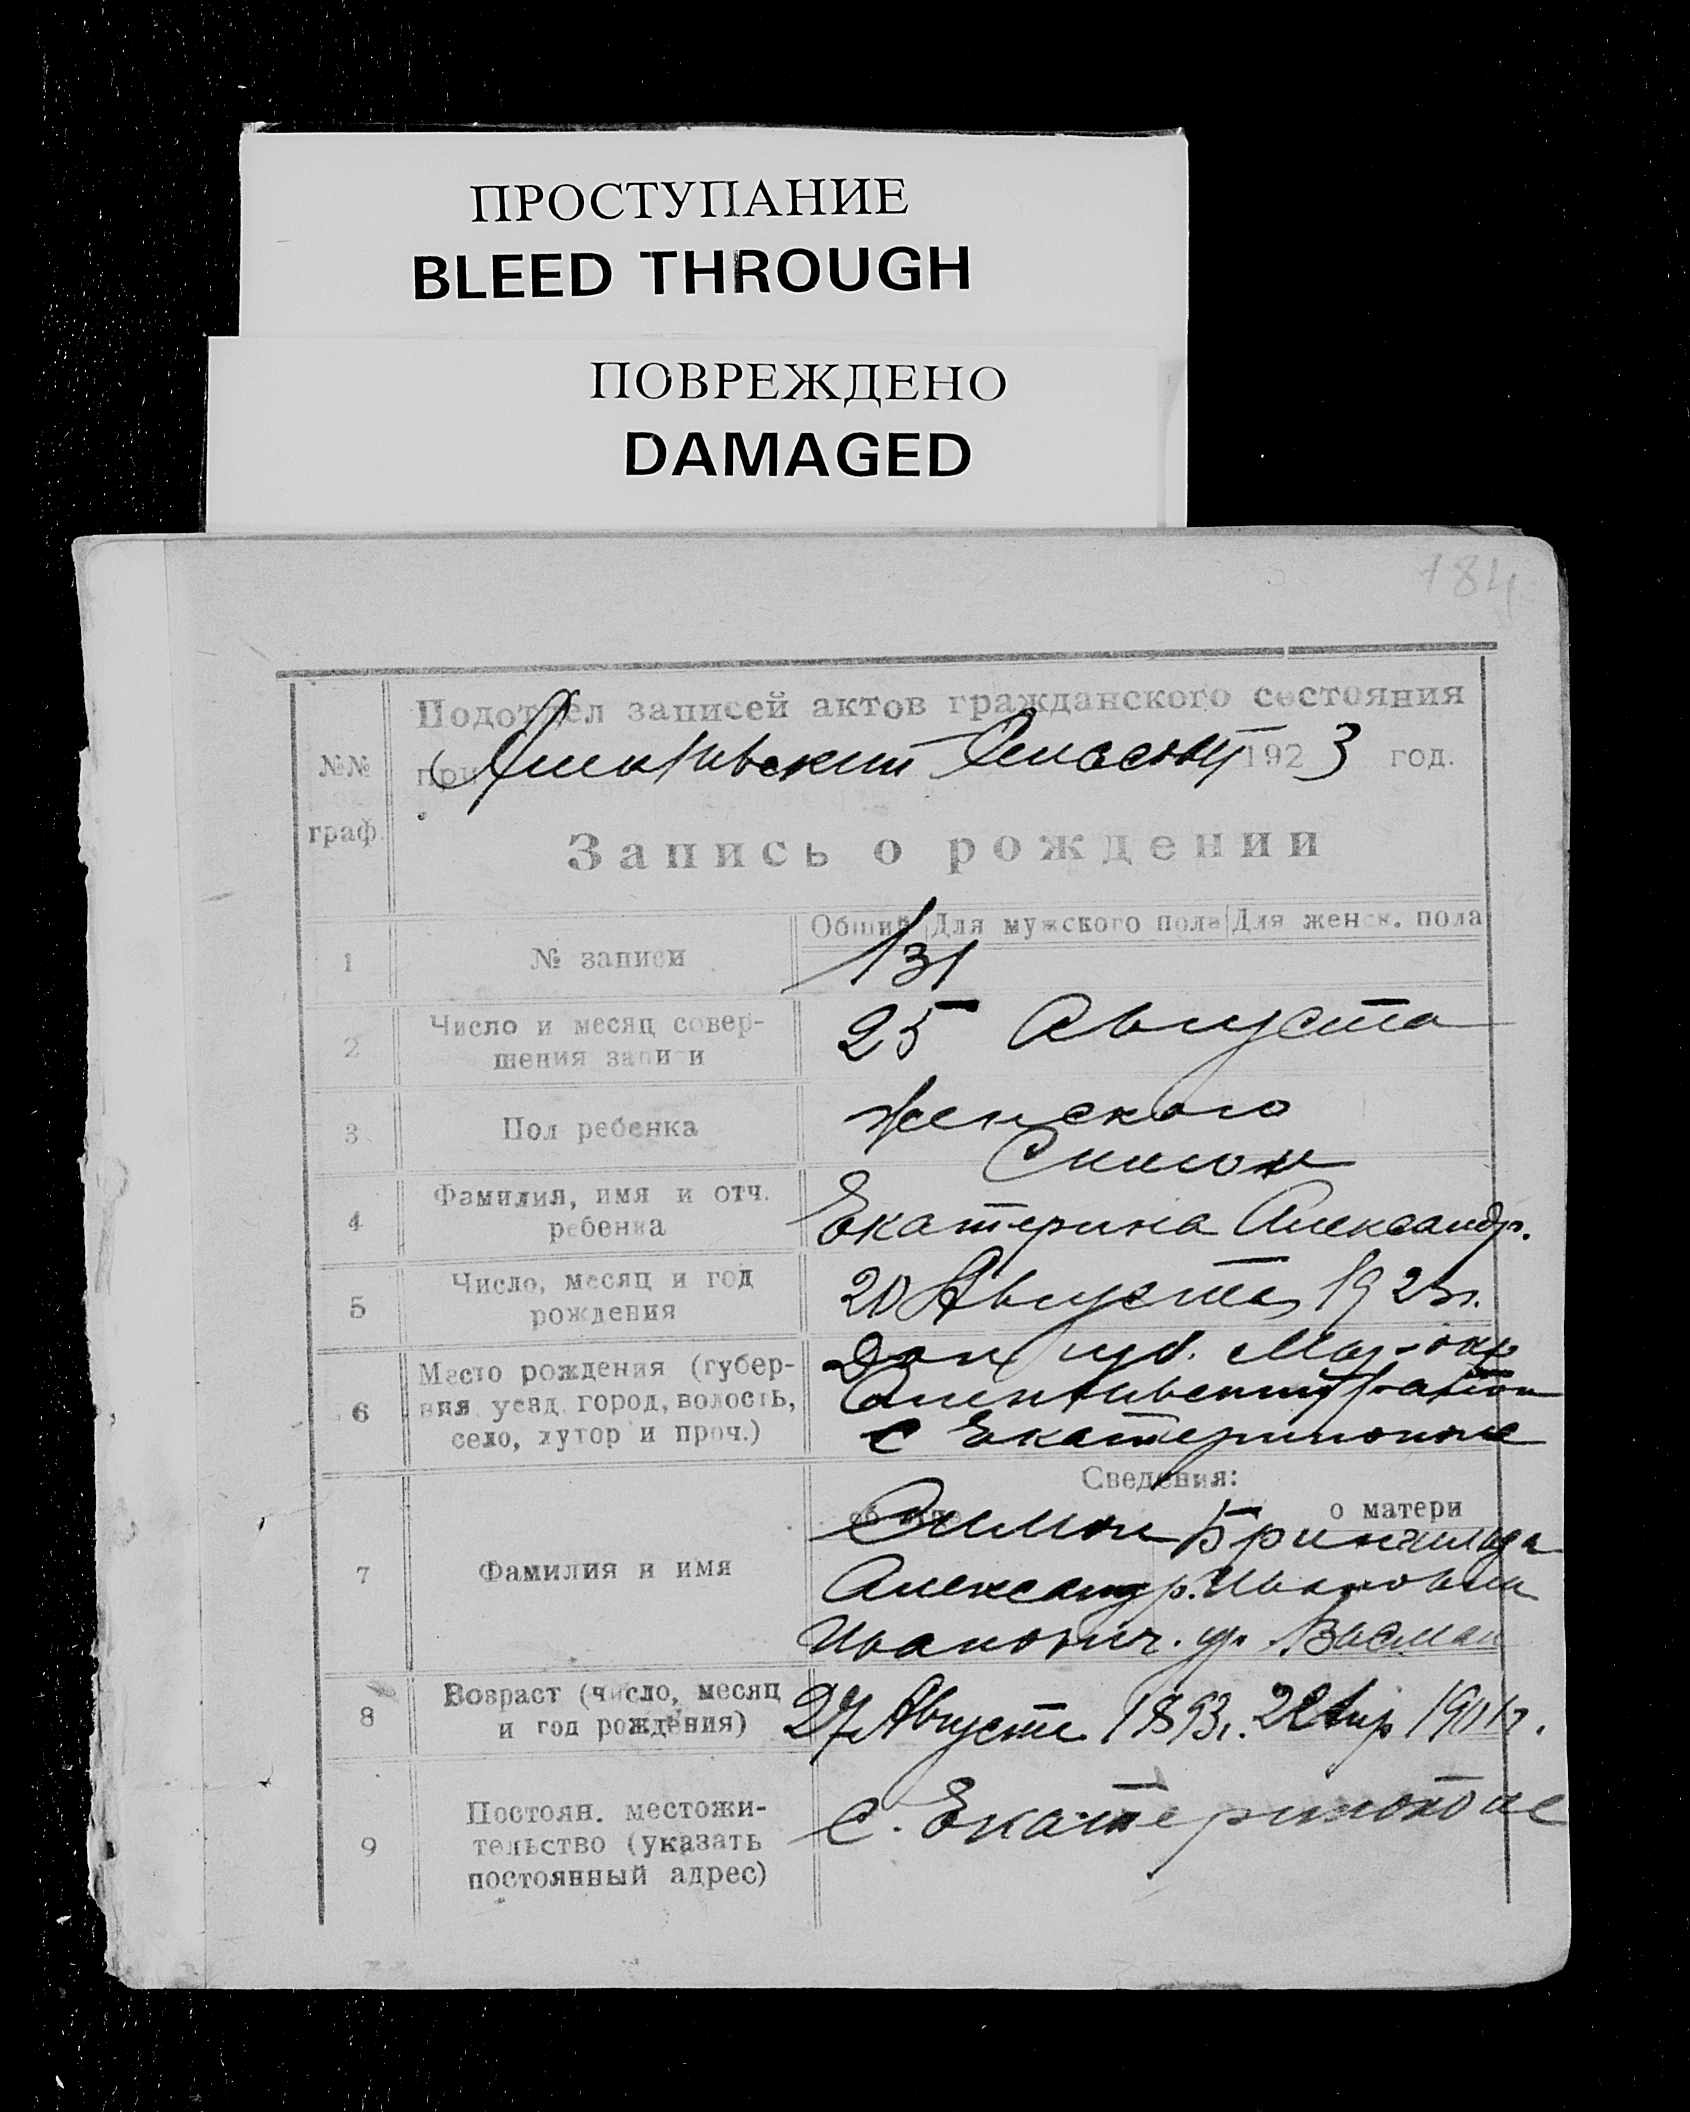 ПРОСТУПАНИЕ
BLEED THROUGH
ПОВРЕЖДЕНО
DAMAGED
184
Подотдел записей актов гражданского состояния
№№
при 192 3 год.
граф.
Запись о рождении
Общий Для мужского пола Для женск. пола
1 № записи 131
2 Число и месяц совер-
шения записи
25 Августа
3 Пол ребенка женского
Симон
4 Фамилия, имя и отч.
ребенка
Екатерина Александр.
5 Число, месяц и год
рождения
20 Августа 1923г.
6 Место рождения (губер-
ния, уезд, город, волость,
село, хутор и проч.)
Дон губ. Мар-окр
район
с Екатеринополе
Сведения:
о матери
7 Фамилия и имя
Симон
Александр.
Иванович.
Брингильда
Ивановна
ур. Васман
8 Возраст (число, месяц
и год рождения)
27 Августа 1893г. 22 Апр 1901г.
9 Постоян. местожи-
тельство (указать
постоянный адрес)
с. Екатеринополе